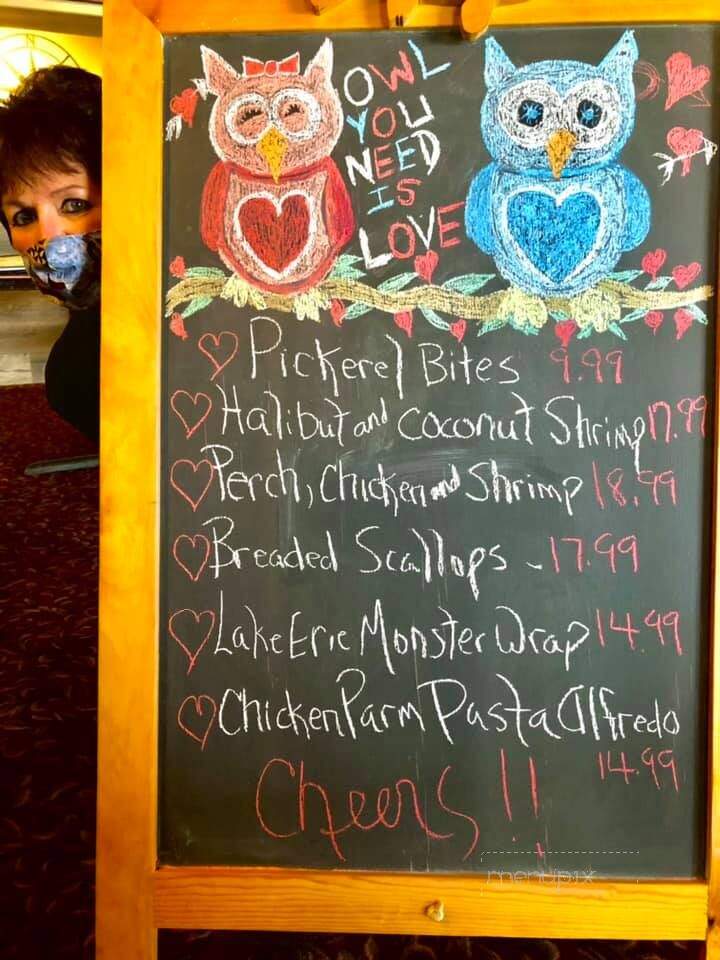 OWL
YOU
NEED
IS
LOVE
Pickerel Bites 9.99
Halibut and Coconut Shrimp 17.99
Perch, Chicken and Shrimp 18.99
Breaded Scallops - 17.99
Lake Erie Monster Wrap 14.99
Chicken Parm Pasta Alfredo
14.99
Cheers!!
menupix